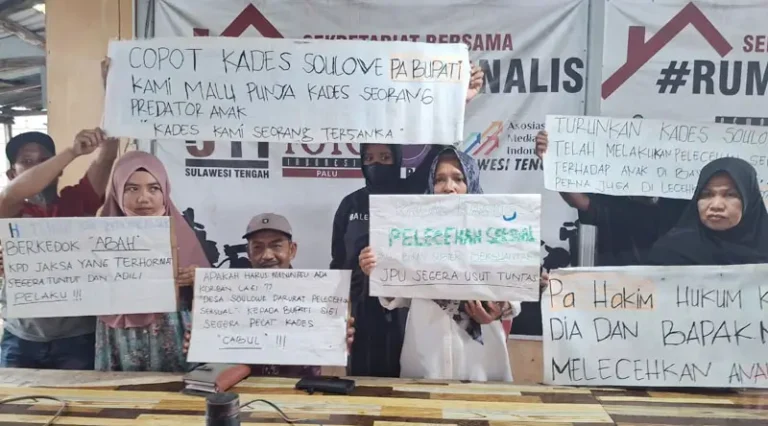 SEKRETARIAT BERSAMA
COPOT KADES SOULOVE PA BUPATI
KAMI MALU PUNJA KADES SEORANG
PREDATOR ANAK
"KADES KAMI SEORANG TERSANKA"
NALIS
#RUM
SULAWESI TENGAH
INDONESIA
PALU
Asosias
Media
Indone
TURUNKAN KADES SOULOVE
TELAH MELAKUKAN PELECEHAN SE
TERHADAP ANAK DI
PERNA JUGA DI LECEH
BERKEDOK "ABAH"
KPD JAKSA YANG TERHORMA
SEGERA TUNTUT DAN ADILI
PELAKU !!!
APAKAH HARUS MENUNGGU ADA
KORBAN LAGI ??
"DESA SOULOWE DARURAT PELECEH
SEKSUAL" KEPADA BUPATI SIGI
SEGERA PECAT KADES
"CABUL" !!!
PELECEHAN
JPU SEGERA USUT TUNTAS
Pa Hakim HUKUM K
DIA DAN BAPAK
MELECEHKAN ANA